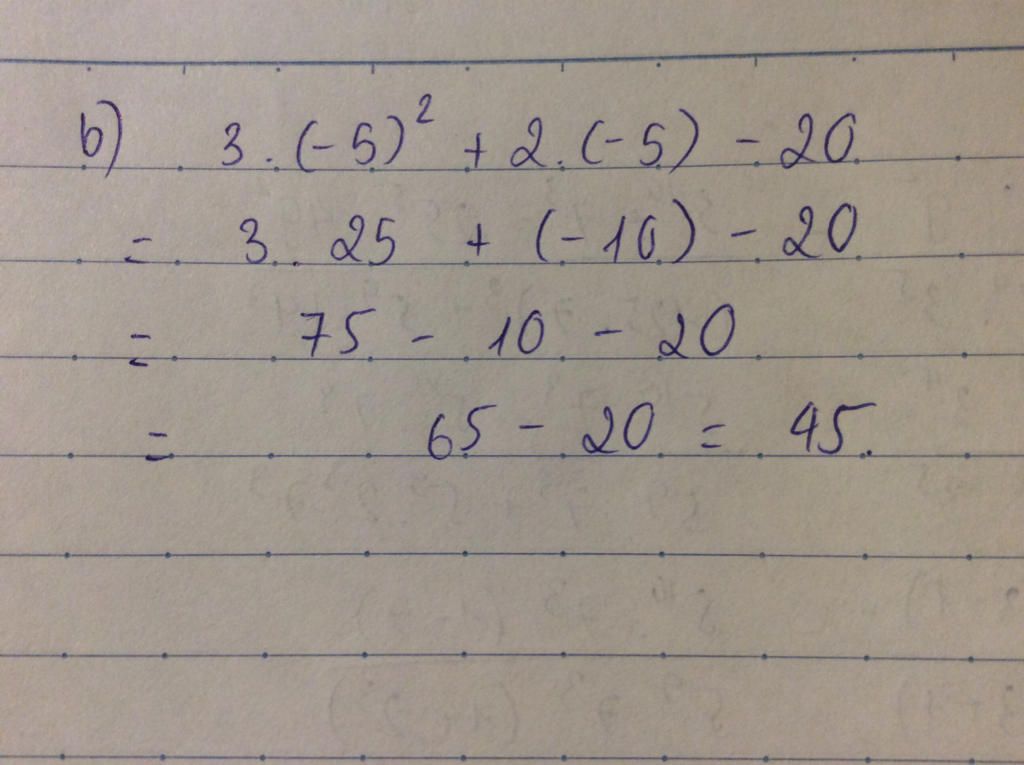 b) 3 . (-5)² + 2 . (-5) - 20
= 3 . 25 + (-10) - 20
= 75 - 10 - 20
= 65 - 20 = 45.